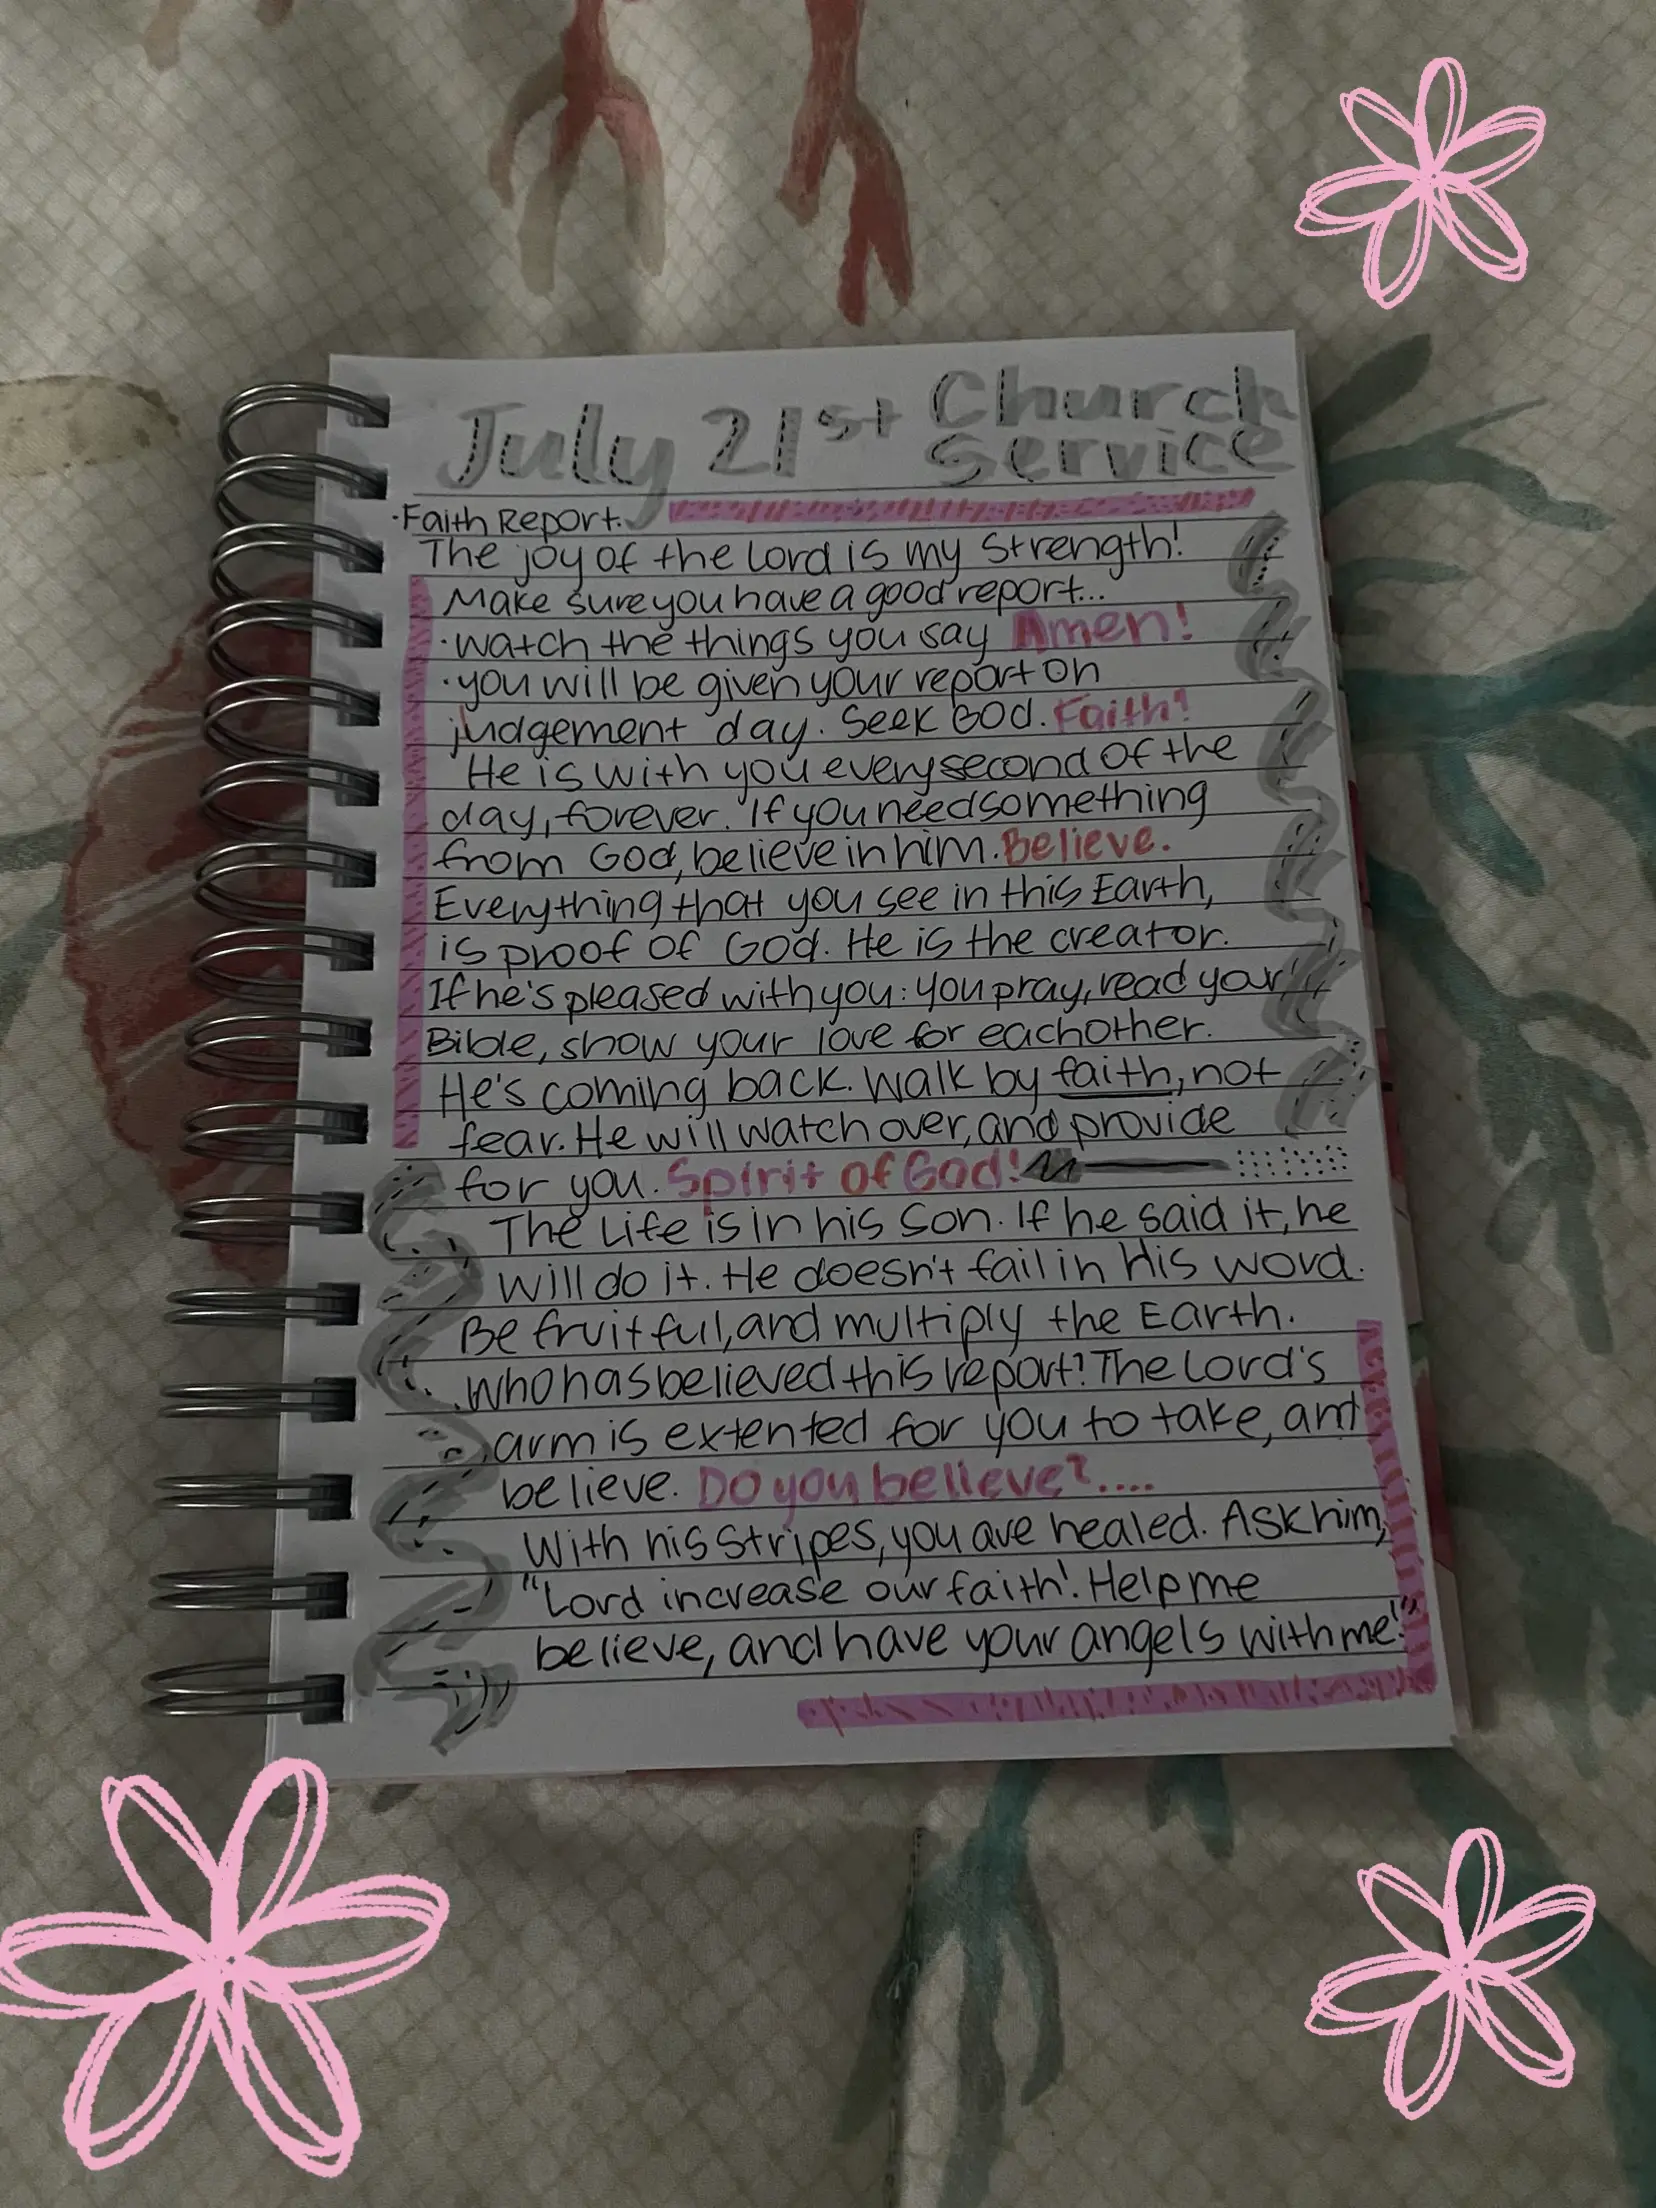 July 21st Church Service
·Faith Report.
The joy of the Lord is my Strength!
Make sure you have a good report...
·watch the things you say Amen!
·you will be given your report on
judgement day. Seek God. Faith!
He is with you every second of the
day, forever. If you need something
from God, believe in him. Believe.
Everything that you see in this Earth,
is proof of God. He is the creator.
If he's pleased with you: you pray, read your
Bible, show your love for eachother.
He's coming back. Walk by faith, not
fear. He will watch over, and provide
for you. Spirit of God!
The Life is in his Son. If he said it, he
will do it. He doesn't fail in His word.
Be fruitful, and multiply the Earth.
who has believed this report? The Lord's
arm is extented for you to take, and
believe. Do you believe?....
With his stripes, you are healed. Ask him,
"Lord increase our faith! Help me
believe, and have your angels with me!"